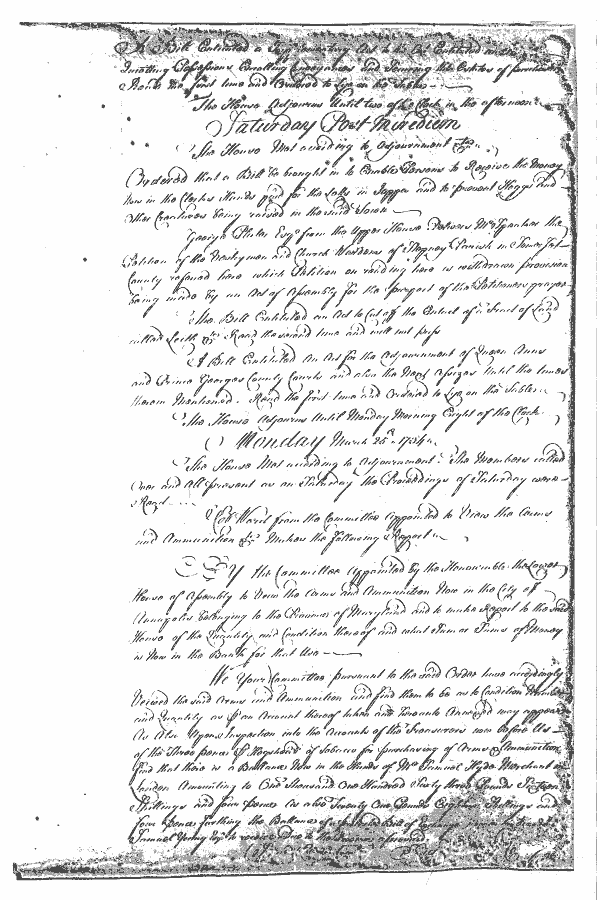 A Bill Entituled a Supplementary Act to the Act Entituled an Act for
Quieting Possessions Enrolling Conveyances and Securing the Estates of purchasers
Read the first time and Ordered to Lye on the Table
The House Adjourns Until two of the Clock in the afternoon
Saturday Post Meridiem
The House Met according to Adjournment &c
Ordered that a Bill be brought in to Enable Persons to Receive the Money
now in the Clerks Hands paid for the Lotts in Joppa and to prevent Hoggs and
other Creatures being raised in the said Town
George Plater Esqr from the Upper House Delivers Mr Speaker the
Petition of the Vestrymen and Church Wardens of Stepney Parish in Somerset
County referred here which Petition on reading here is withdrawn provision
being made by an Act of Assembly for the purport of the Petitioners prayer
The Bill Entituled an Act to Cut off the Entail of a Tract of Land
called Leith &c Read the second time and will not pass
A Bill Entituled An Act for the Adjournment of Queen Anns
and Prince Georges County Courts and also the Next Assizes Until the times
therein Mentioned. Read the first time and Ordered to Lye on the Table
The House Adjourns Until Monday Morning Eight of the Clock
Monday March 25th 1734
The House Met according to Adjournment. The Members called
Over and All present as on Saturday the Proceedings of Saturday were
Read
Coll Ward from the Committee appointed to View the Arms
and Ammunition &c Makes the following Report
By the Committee Appointed by the Honourable the Lower
House of Assembly to View the Arms and Ammunition Now in the City of
Annapolis belonging to the Province of Maryland and to make Report to the said
House of the Quantity and Condition thereof and what Sum or Sums of Money
is Now in the Bank for that Use
We Your Committee pursuant to the said Order have accordingly
Viewed the said Arms and Ammunition and find them to be as to Condition Number
and Quantity as Per an Account thereof taken and hereunto Annexed may appear
As Also Upon Inspection into the Accounts of the Treasurers now before Us
of the Three pence Per Hogshead of Tobacco for purchasing of Arms & Ammunition
find that there is a Ballance Now in the Hands of Mr Samuel Hyde Merchant in
London Amounting to One Thousand One Hundred Sixty three Pounds Sixteen
Shillings and four Pence As also Twenty One Pounds Eighteen Shillings and
four Pence farthing the Ballance of a Protested Bill of Exchange
Samuel Young Esqr to